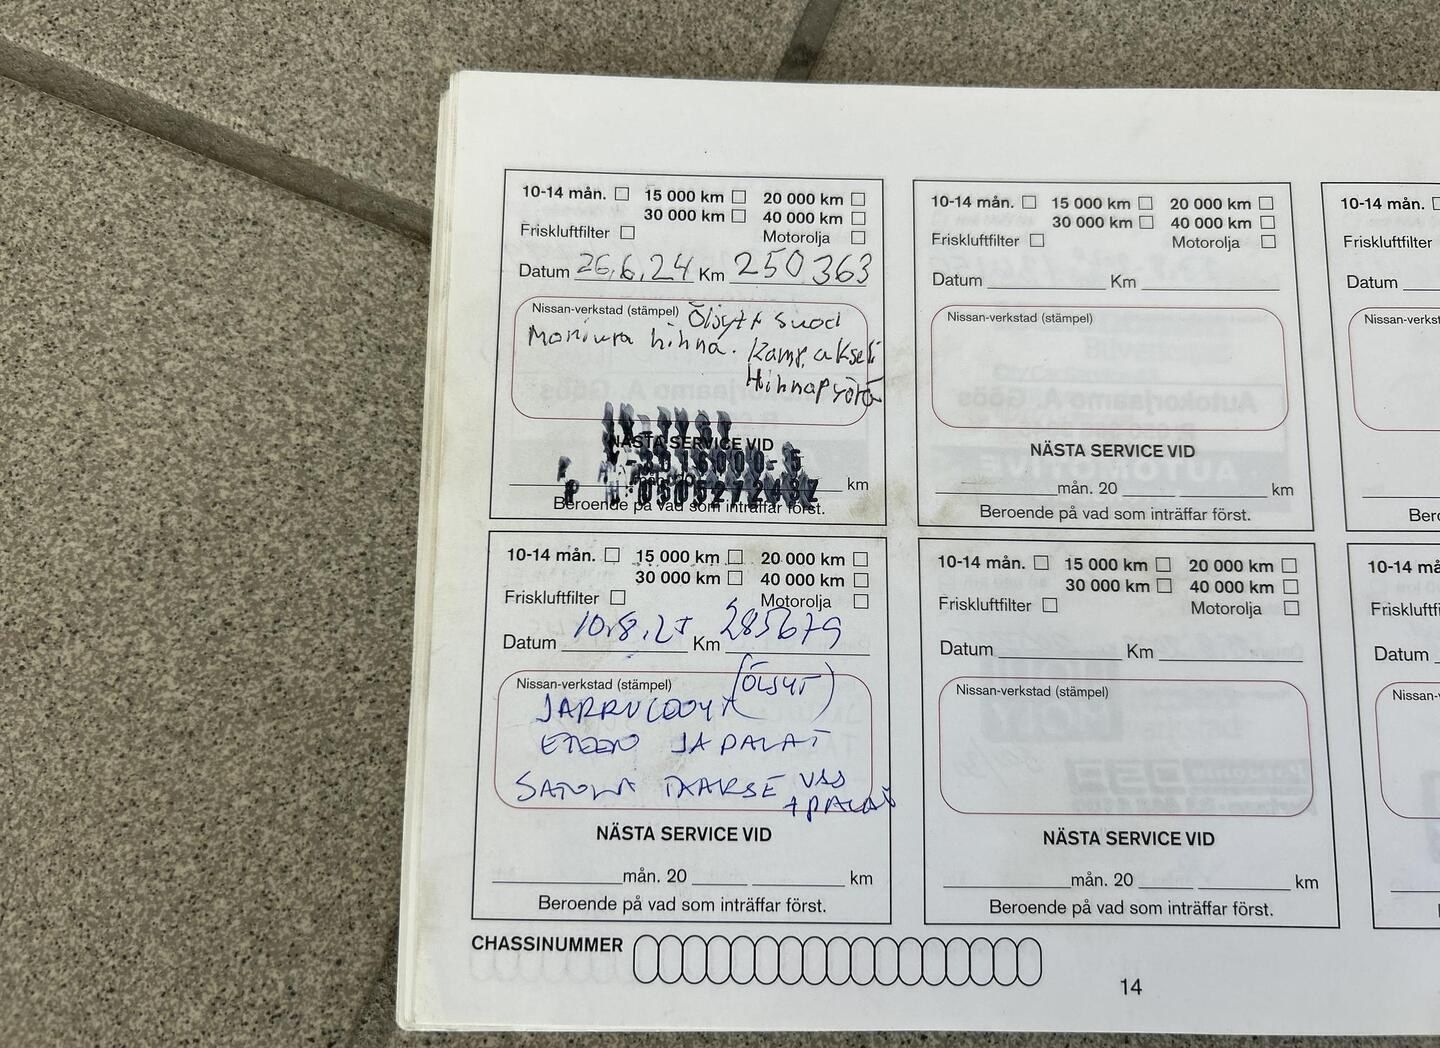 10-14 mån. 15 000 km 20 000 km
30 000 km 40 000 km
Friskluftfilter Motorolja
Datum 26.6.24 Km 250363
Nissan-verkstad (stämpel) Öljyt suod
Moniura hihna. Kamp.akseli
Hihnapyörä
NÄSTA SERVICE VID
km
Beroende på vad som inträffar först.
10-14 mån. 15 000 km 20 000 km
30 000 km 40 000 km
Friskluftfilter Motorolja
Datum Km
Nissan-verkstad (stämpel)
NÄSTA SERVICE VID
mån. 20 km
Beroende på vad som inträffar först.
10-14 mån.
Friskluftfilter
Datum
10-14 mån. 15 000 km 20 000 km
30 000 km 40 000 km
Friskluftfilter Motorolja
Datum 10.8.25 Km 285679
Nissan-verkstad (stämpel) (ÖLJYT)
JA PALAT
PALAT
NÄSTA SERVICE VID
mån. 20 km
Beroende på vad som inträffar först.
10-14 mån. 15 000 km 20 000 km
30 000 km 40 000 km
Friskluftfilter Motorolja
Datum Km
Nissan-verkstad (stämpel)
NÄSTA SERVICE VID
mån. 20 km
Beroende på vad som inträffar först.
Datum
CHASSINUMMER
14